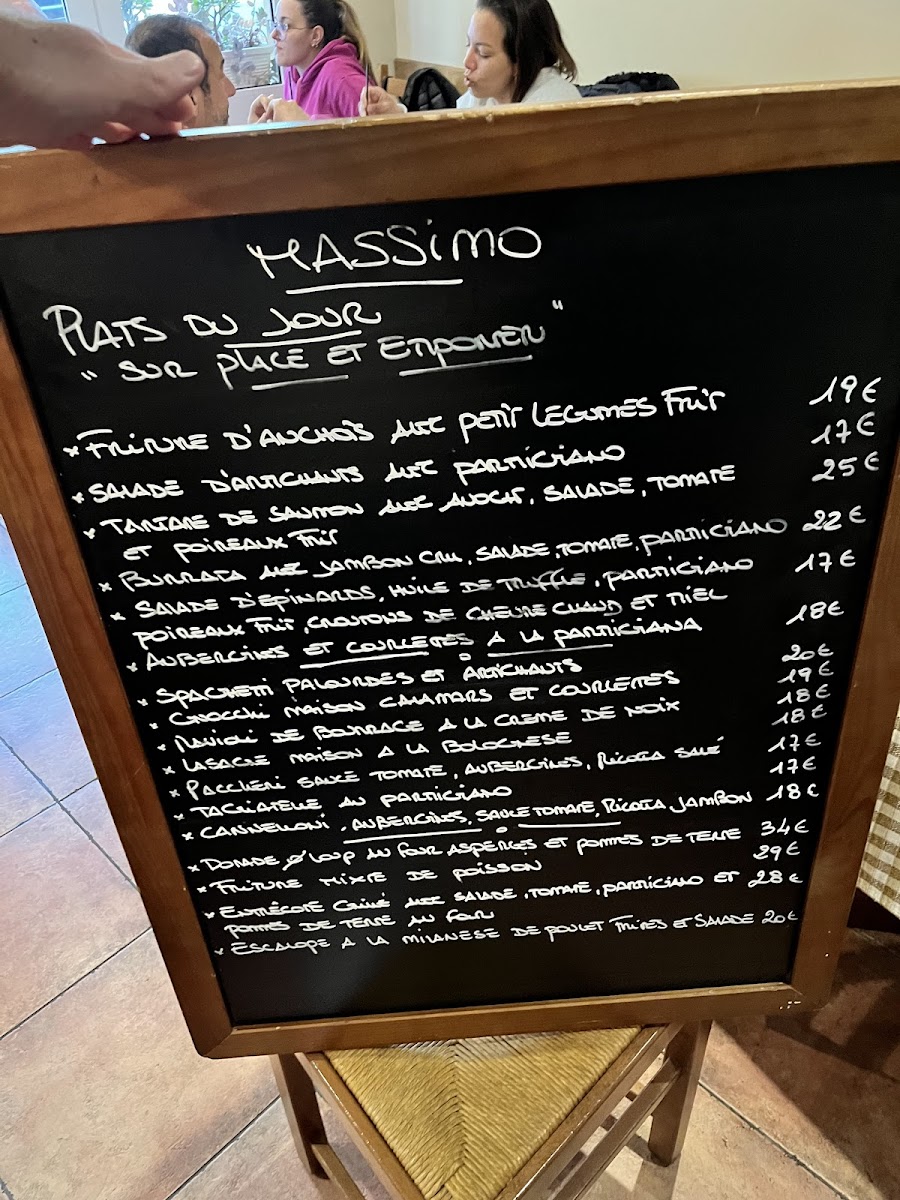 MASSIMO
PLATS DU JOUR
" SUR PLACE ET EMPORTER "
* FRITURE D'ANCHOIS AVEC PETIT LEGUMES FRIT 19€
* SALADE D'ARTICHAUTS AVEC PARTIGIANO 17€
* TARTARE DE SAUMON AVEC AVOCAT, SALADE, TOMATE 25€
ET POIREAUX FRIT
* BURRATA AVEC JAMBON CRU, SALADE, TOMATE, PARTIGIANO 22€
* SALADE D'EPINARDS, HUILE DE TRUFFE, PARTIGIANO 17€
POIREAUX FRIT, CROUTONS DE CHEVRE CHAUD ET MIEL
* AUBERGINES ET COURGETTES A LA PARTIGIANA 18€
* SPAGHETTI PALOURDES ET ARTICHAUTS 20€
* GNOCCHI MAISON CALAMARS ET COURGETTES 19€
* RAVIOLI DE BOURRAGE A LA CREME DE NOIX 18€
* LASAGNE MAISON A LA BOLOGNESE 18€
* PACCHERI SAUCE TOMATE, AUBERGINES, RICOTTA SALÉ 17€
* TAGLIATELLE AU PARTIGIANO 17€
* CANNELLONI, AUBERGINES, SAUCE TOMATE, RICOTTA JAMBON 18€
* DORADE Ø LOUP AU FOUR ASPERGES ET POMMES DE TERRE 34€
* FRITURE MIXTE DE POISSON 29€
* ENTRECOTE GRILLÉ AVEC SALADE, TOMATE, PARTIGIANO ET 28€
POMMES DE TERRE AU FOUR
* ESCALOPE A LA MILANESE DE POULET FRITES ET SALADE 20€